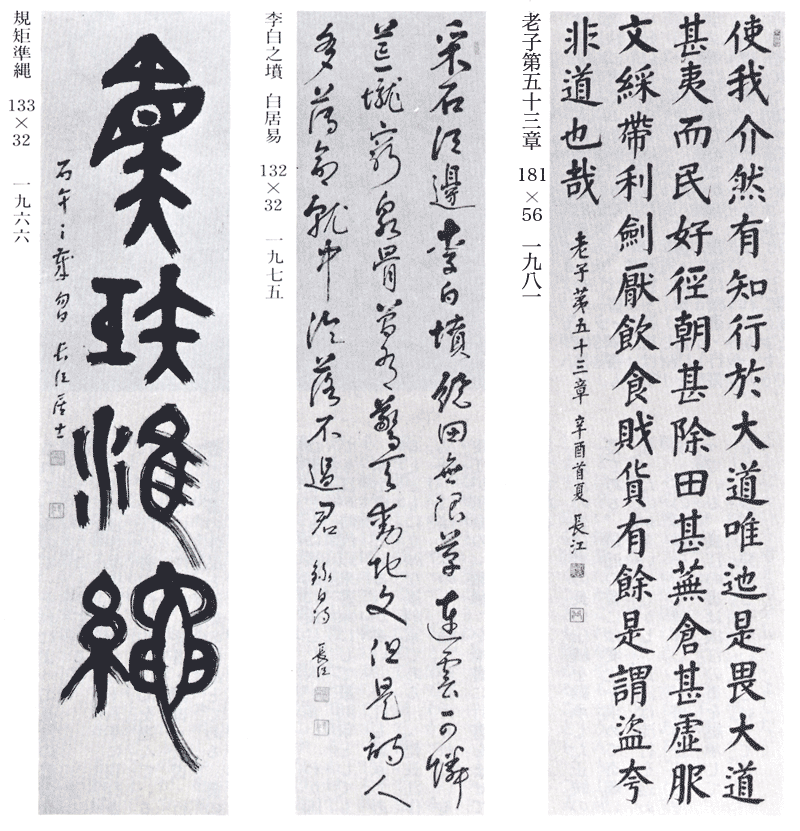 使我介然有知行於大道唯迆是畏大道
甚夷而民好徑朝甚除田甚蕪倉甚虛服
文綵帶利劍厭飲食財貨有餘是謂盜夸
非道也哉
老子第五十三章 辛酉首夏 長江
老子第五十三章 181×56 一九八一
采石江邊李白墳繞田無限草連雲可憐
荒壠窮泉骨曾有驚天動地文但是詩人
多薄命就中淪落不過君 錄白詩 長江
李白之墳 白居易 132×32 一九七五
規矩準繩
丙午 長江居士
規矩準縄 133×32 一九六六